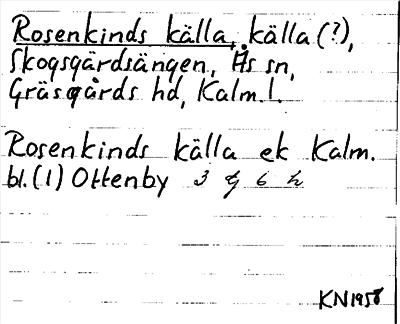 Rosenkinds källa, källa (?),
Skogsgärdsängen, Ås sn,
Gräsgårds hd, Kalm. l.
Rosenkinds källa ek Kalm.
bl. (1) Ottenby 3 g 6 h
KN 1958